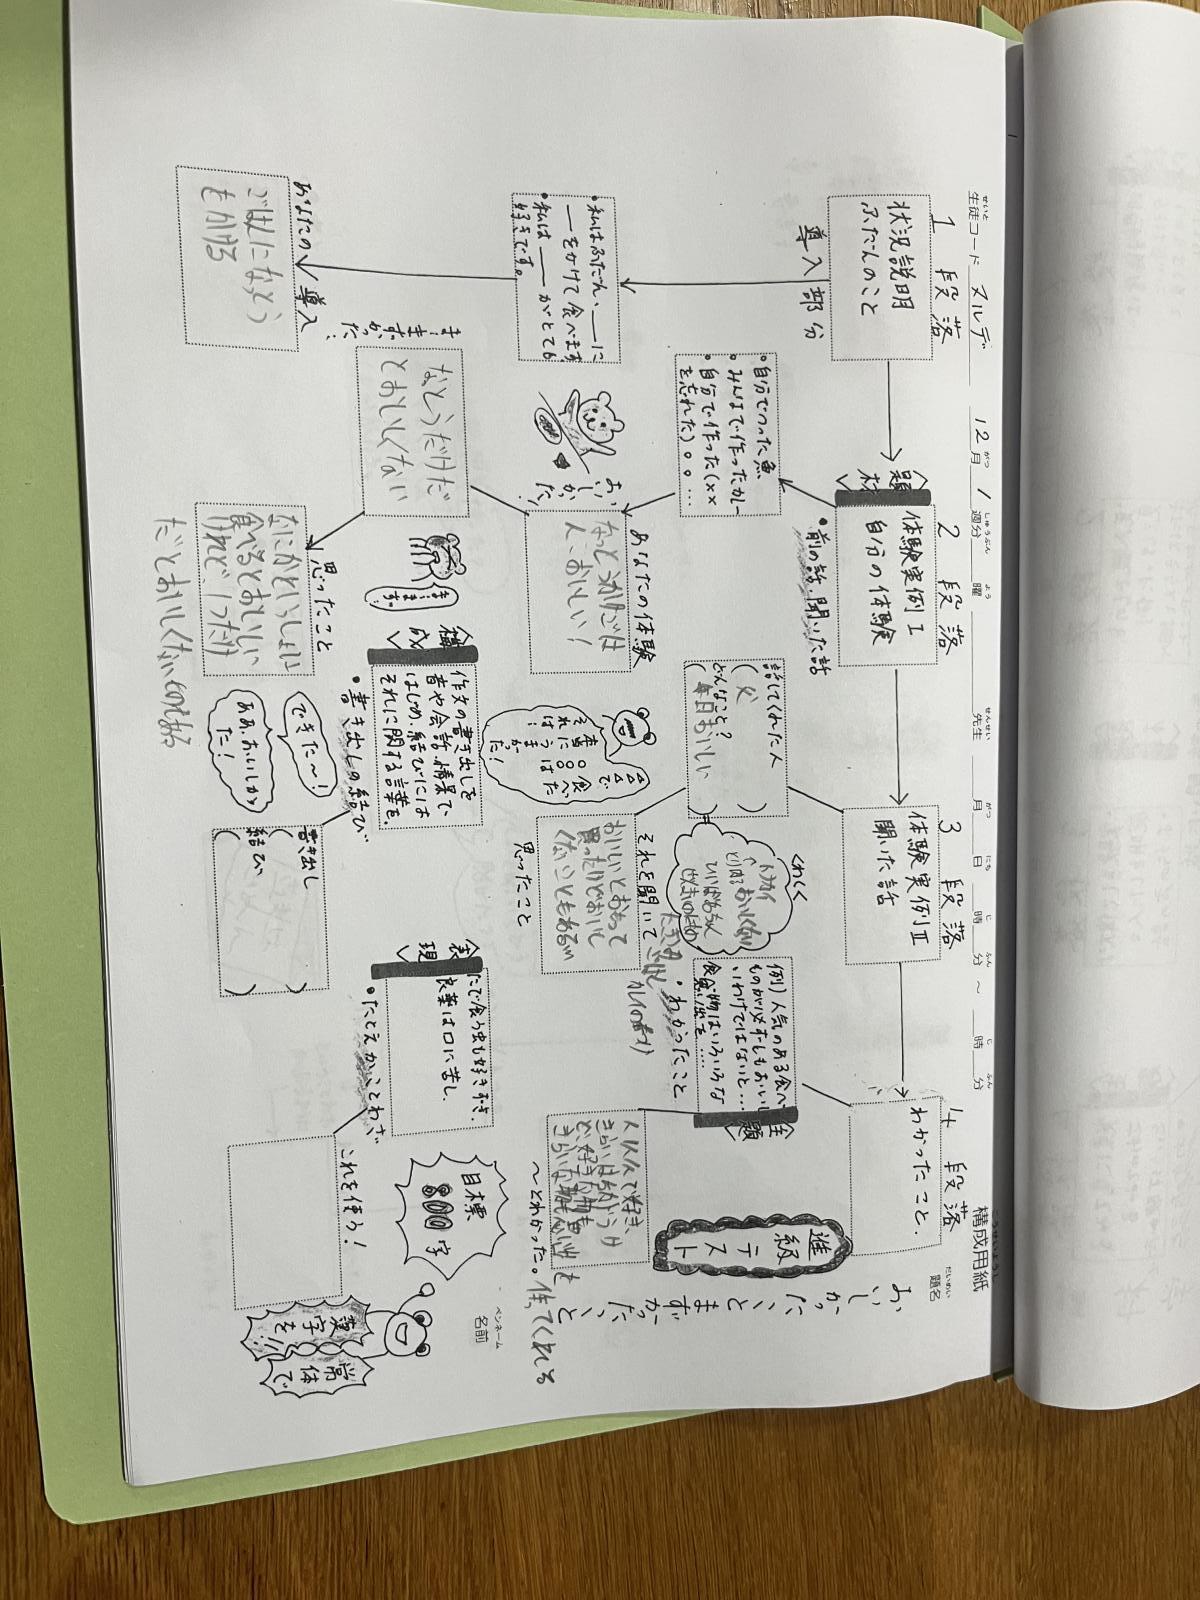 構成用紙
こうせいようし
生徒コード ヌルデ 12月 1週分 曜 先生 月 日 時 分 ～ 時 分
せいと がつ しゅうぶん よう せんせい がつ にち じ ふん じ ふん
題名
だいめい
おいしかったこと
まずかったこと
名前
ペンネーム
1 段落
状況説明
ふだんのこと
導入部分
・私はふだん、＿＿に
＿＿をかけて食べます
・私は＿＿がとても
好きです。
あなたの導入
ごはんになっとう
をかける
2 段落
体験実例Ⅰ
自分の体験
・前の話、聞いた話
〈題材〉
・自分でつった魚
・みんなで作ったカレー
・自分で作った(××
を忘れた)。。…
おいしかった！
あなたの体験
なっとうかけごは
ん、おいしい！
ま、まずかった…
なとうだけだ
とおいしくない
思ったこと
なにかといっしょに
食べるとおいしい
けれど、1つだけ
だとおいしくないものもある
ま、まずい…
3 段落
体験実例Ⅱ
聞いた話
話してくれた人
(父)
どんなこと？
(毎日おいしい)
くわしく
おいしくない
ひいばあちゃん
それを聞いて
思ったこと
おいしいとおもって
買ったけどおいし
くないこともある
△△で
食べた
〇〇は
本当に
うまかった！
それは
〈構成〉
作文の書き出しを
音や会話、情景で、
はじめ、結びには
それに関する言葉を。
・書き出しの結び
できた～！
ああ、おいしかっ
た！
書き出し
( )
結び
( )
4 段落
わかったこと.
〈主題〉
例)人気のある食べ
ものが必ずしもおいし
いわけではないと…
食べ物はいろいろな
思い出を……
・わかったこと
人によって好き、
きらいはちがうけ
ど、好きな物も
きらいな物も思い出を
～とわかった。
作ってくれる
進級テスト
〈表現〉
たで食う虫も好き好き.
良薬は口に苦し.
・たとえか、ことわざ
これを使ろ！
目標
800字
漢字を!!
常体で